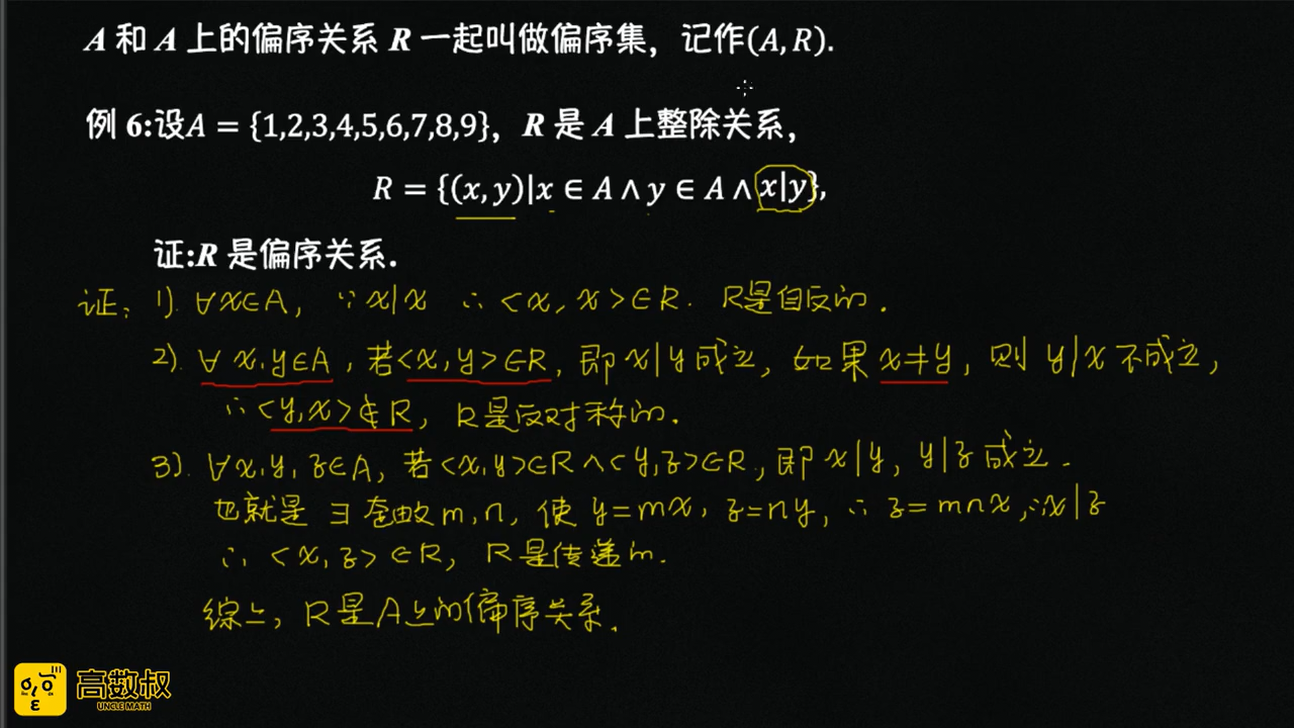 A 和 A 上的偏序关系 R 一起叫做偏序集，记作(A, R).
例 6:设A = {1,2,3,4,5,6,7,8,9}，R 是 A 上整除关系，
R = {(x, y)|x ∈ A ∧ y ∈ A ∧ x|y},
证:R 是偏序关系.
证：1). ∀x∈A, ∵ x|x ∴ <x, x>∈R. R是自反的.
2). ∀ x,y∈A, 若<x, y>∈R, 即 x|y 成立, 如果 x≠y, 则 y|x 不成立,
∴ <y,x>∉R, R是反对称的.
3). ∀x,y,z∈A, 若<x,y>∈R∧<y,z>∈R, 即 x|y, y|z 成立.
也就是 ∃ 整数 m,n, 使 y=mx, z=ny, ∴ z=mnx, ∴x|z
∴ <x,z>∈R, R是传递的.
综上, R是A上的偏序关系.
高数叔
UNCLE MATH